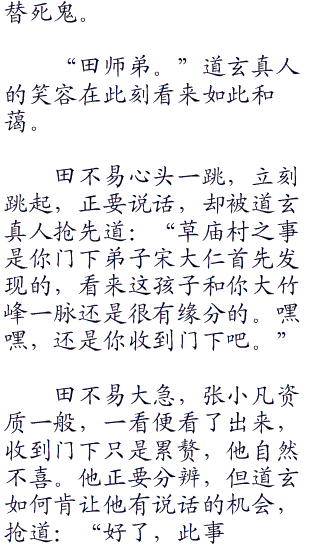 替死鬼。
“田师弟。”道玄真人
的笑容在此刻看来如此和
蔼。
田不易心头一跳，立刻
跳起，正要说话，却被道玄
真人抢先道：“草庙村之事
是你门下弟子宋大仁首先发
现的，看来这孩子和你大竹
峰一脉还是很有缘分的。嘿
嘿，还是你收到门下吧。”
田不易大急，张小凡资
质一般，一看便看了出来，
收到门下只是累赘，他自然
不喜。他正要分辨，但道玄
如何肯让他有说话的机会，
抢道：“好了，此事